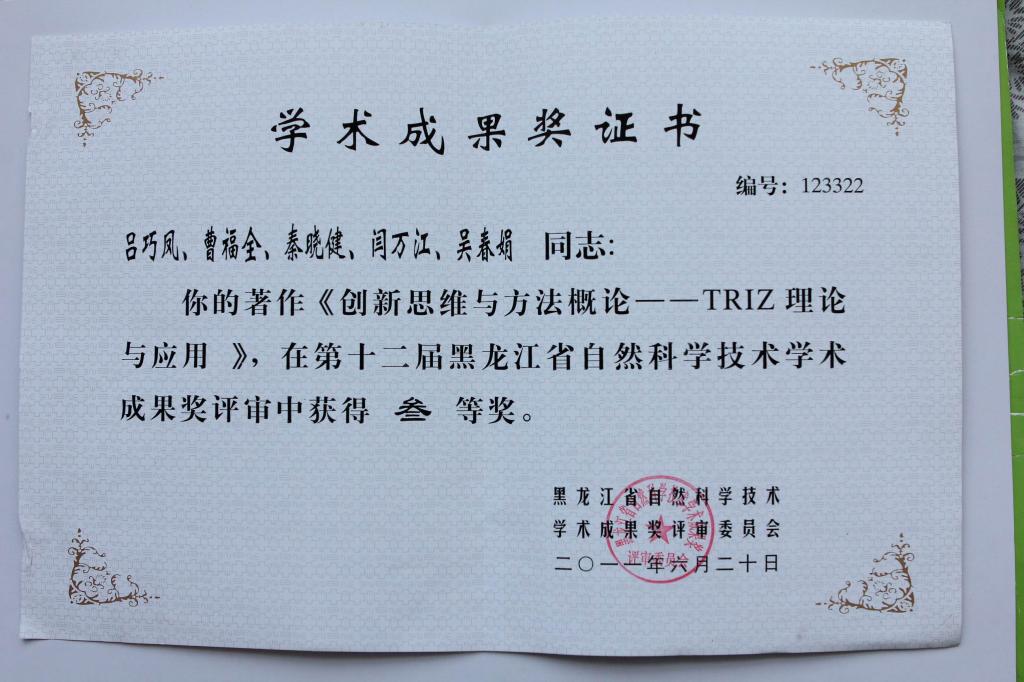 学术成果奖证书
编号：123322
吕巧凤、曹福全、秦晓健、闫万江、吴春娟 同志：
你的著作《创新思维与方法概论——TRIZ 理论
与应用 》，在第十二届黑龙江省自然科学技术学术
成果奖评审中获得 叁 等奖。
黑龙江省自然科学技术
学术成果奖评审委员会
二〇一一年六月二十日
黑龙江省自然科学技术学术成果奖
评审委员会